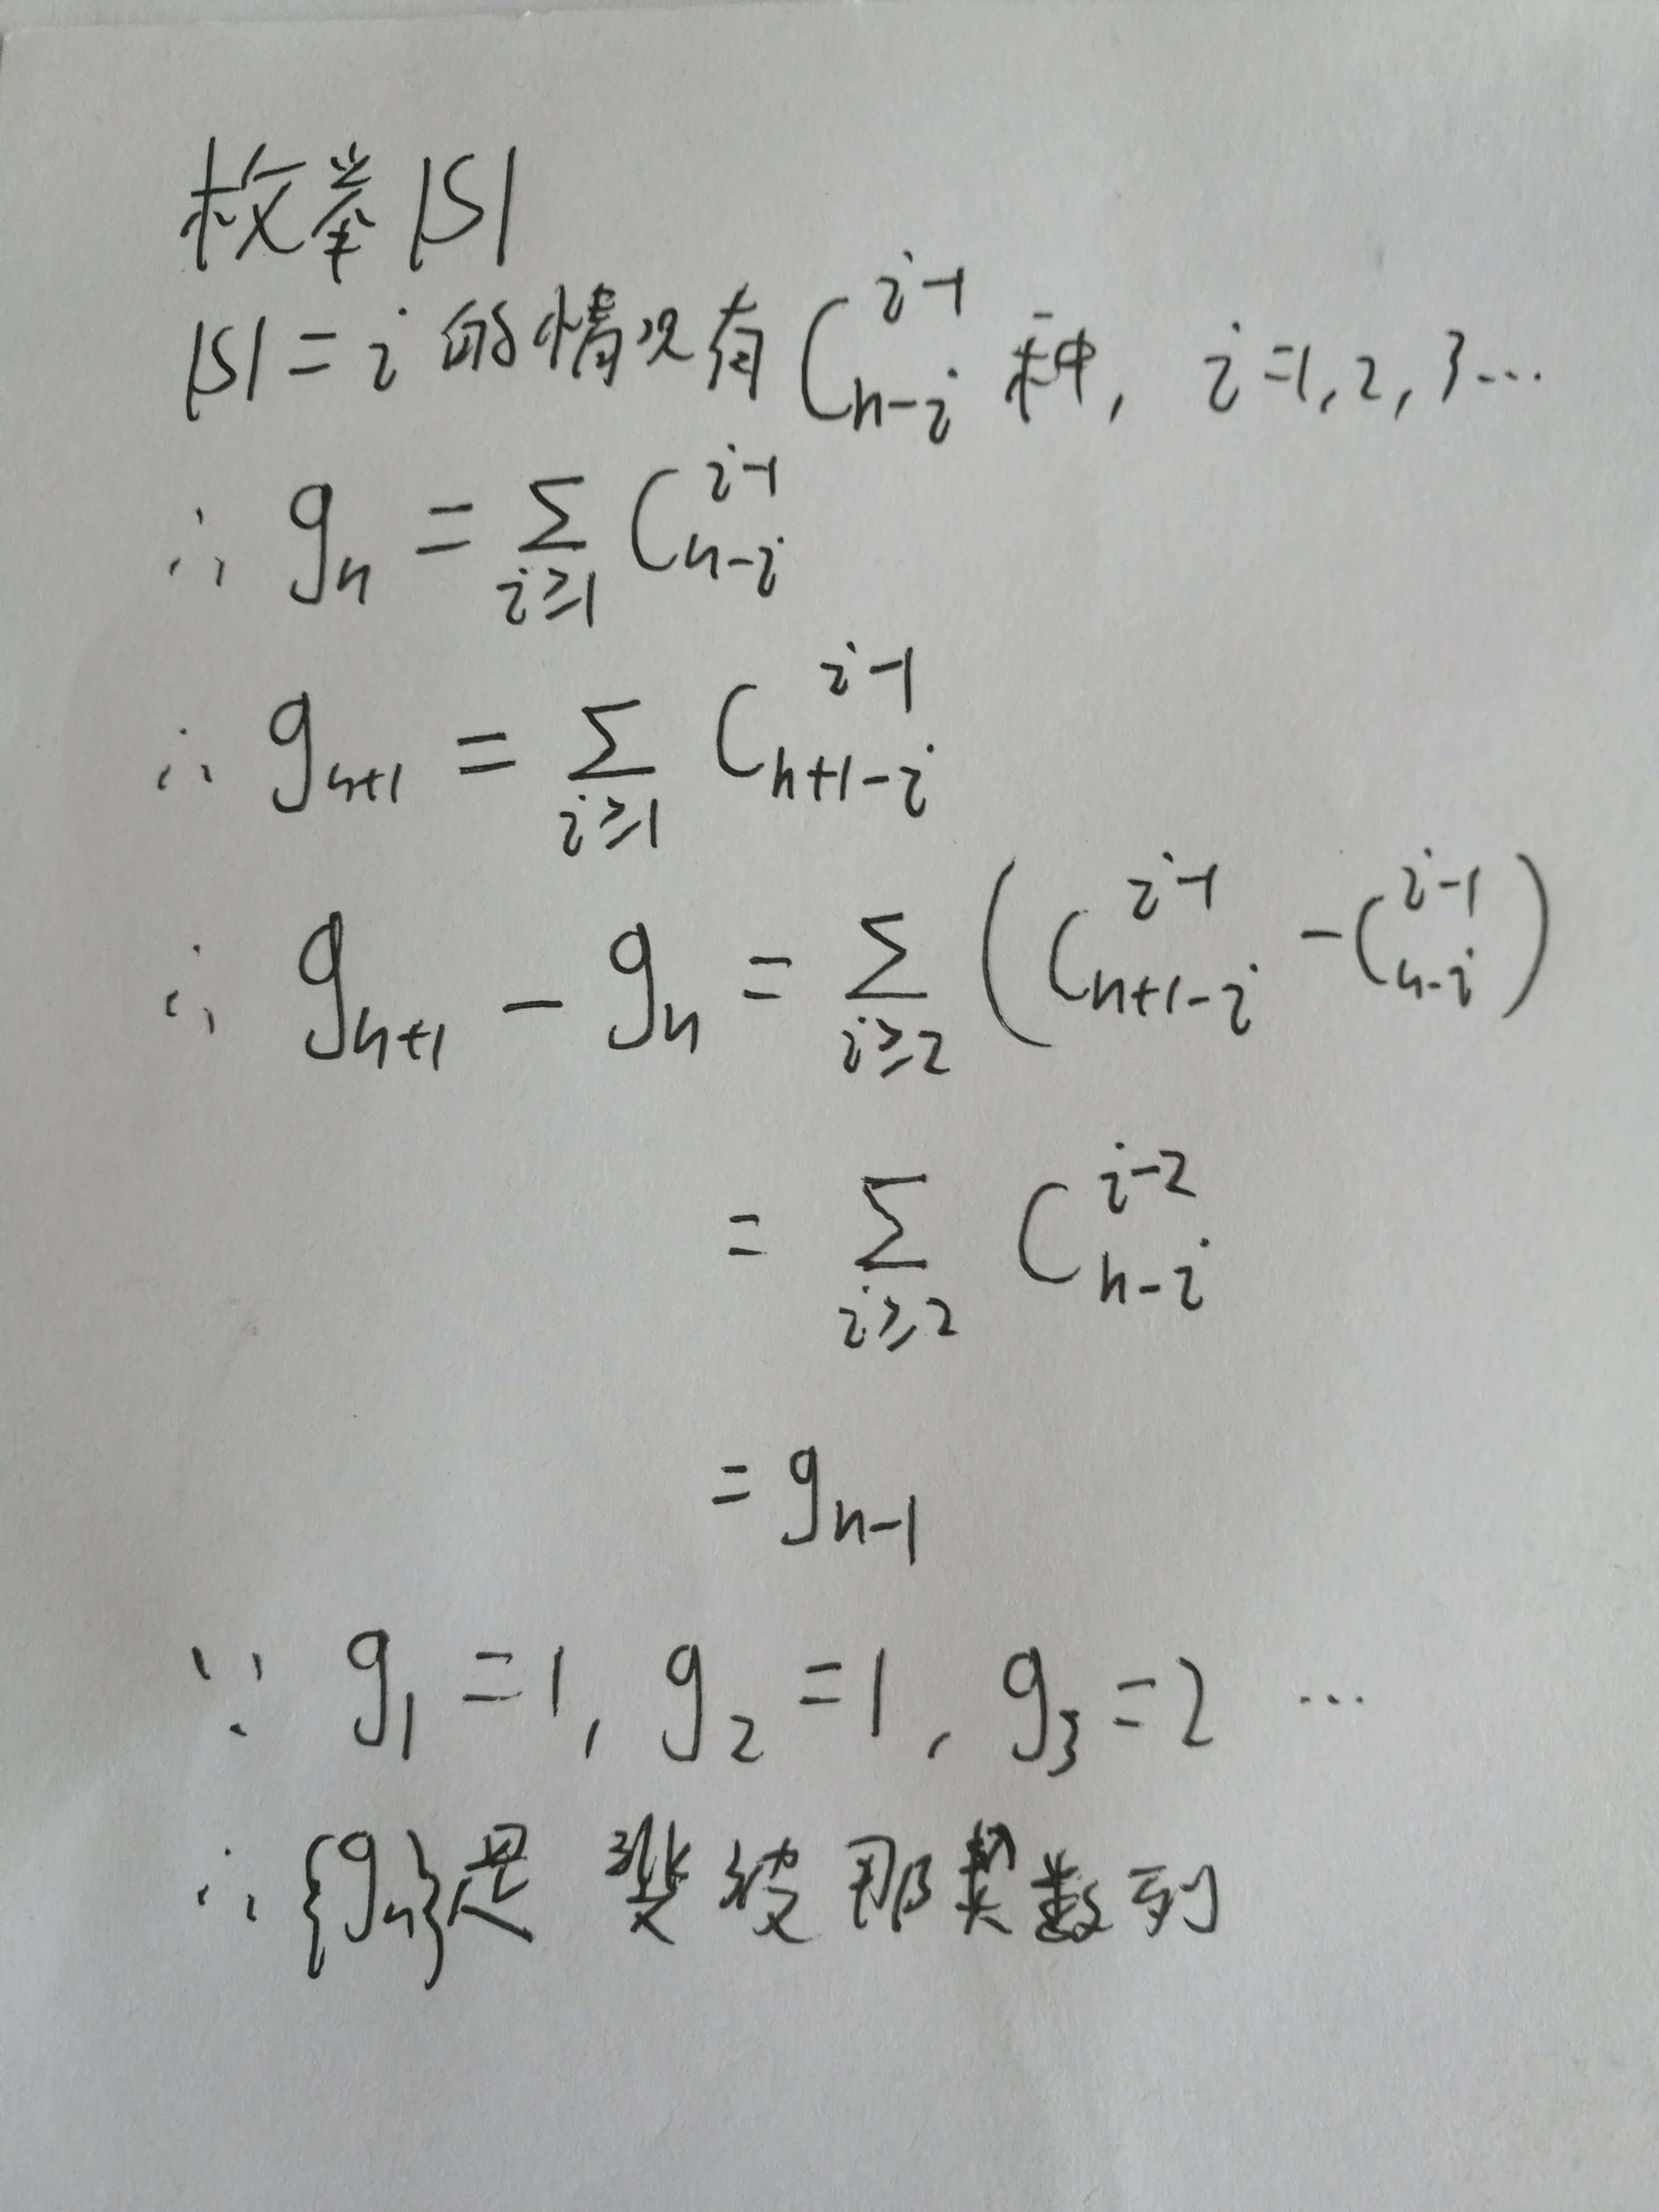 枚举|S|
|S|=i的情况有C_{n-i}^{i-1}种, i=1,2,3…
∴ g_n = ∑_{i≥1} C_{n-i}^{i-1}
∴ g_{n+1} = ∑_{i≥1} C_{n+1-i}^{i-1}
∴ g_{n+1} - g_n = ∑_{i≥2} (C_{n+1-i}^{i-1} - C_{n-i}^{i-1})
= ∑_{i≥2} C_{n-i}^{i-2}
= g_{n-1}
∵ g_1=1, g_2=1, g_3=2 …
∴ {g_n}是斐波那契数列